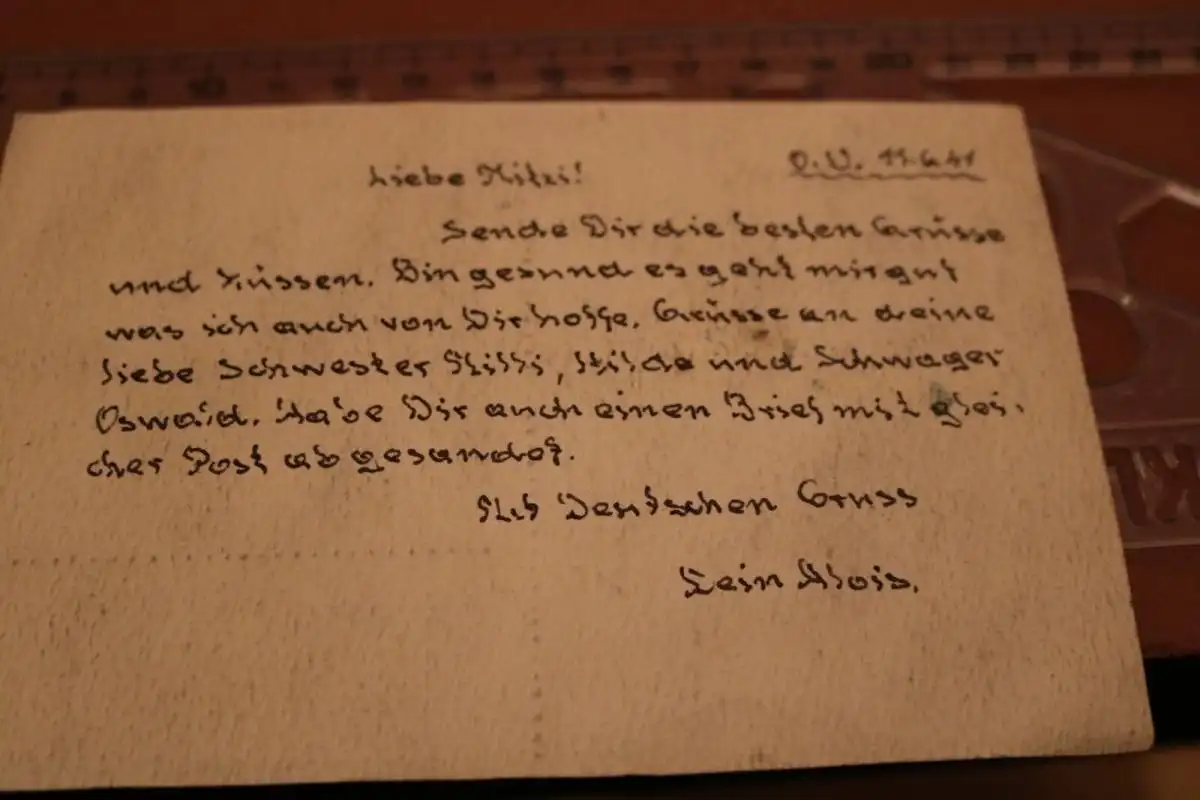 Liebe Mitzi!
O.U. 11.6.41
Sende Dir die besten Grüsse
und Küssen. Bin gesund es geht mir gut
was ich auch von Dir hoffe. Grüsse an deine
liebe Schwester Milli, Hilda und Schwager
Oswald. Habe Dir auch einen Brief mit glei-
cher Post abgesandet.
Mit Deutschen Gruss
Dein Alois.